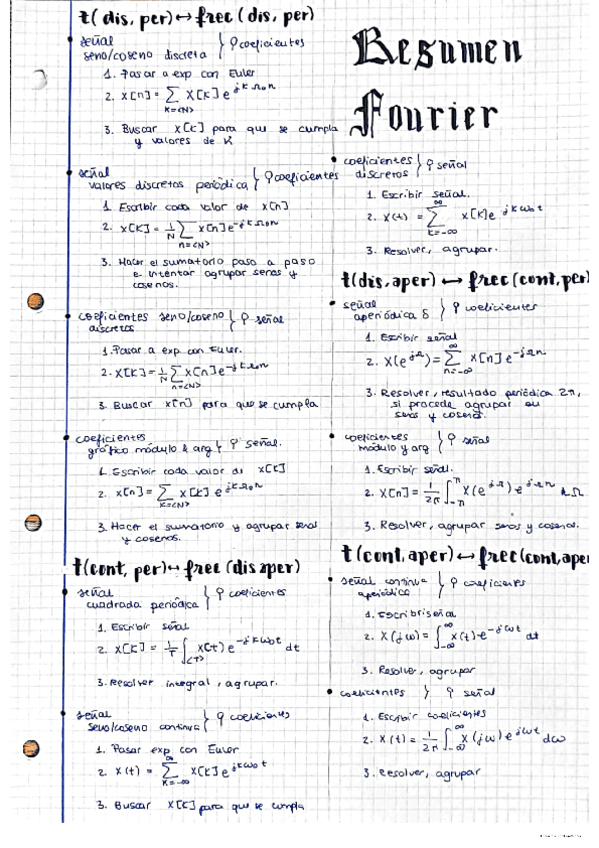 t(dis, per) ↔ frec (dis, per)
señal
seno/coseno discreta } ? coeficientes
1. Pasar a exp con Euler
2. x[n] = Σ_{k=<N>} X[k] e^{jkΩ₀n}
3. Buscar X[k] para que se cumpla
y valores de K
señal
valores discretos periódica } ? coeficientes
1. Escribir cada valor de x[n]
2. X[k] = 1/N Σ_{n=<N>} x[n] e^{-jkΩ₀n}
3. Hacer el sumatorio paso a paso
e intentar agrupar senos y
cosenos.
coeficientes seno/coseno
discretos } ? señal
1. Pasar a exp con Euler.
2. X[k] = 1/N Σ_{n=<N>} x[n] e^{-jkΩ₀n}
3. Buscar x[n] para que se cumpla
coeficientes
gráfico módulo & arg } ? señal.
1. Escribir cada valor de X[k]
2. x[n] = Σ_{k=<N>} X[k] e^{jkΩ₀n}
3. Hacer el sumatorio y agrupar senos
y cosenos.
t(cont, per) ↔ frec (dis aper)
señal
cuadrada periódica } ? coeficientes
1. Escribir señal
2. X[k] = 1/T ∫_{<T>} x(t) e^{-jkω₀t} dt
3. Resolver integral, agrupar.
señal
seno/coseno continua } ? coeficientes
1. Pasar exp con Euler
2. x(t) = Σ_{k=-∞}^{∞} X[k] e^{jkω₀t}
3. Buscar X[k] para que se cumpla
Resumen
Fourier
coeficientes
discretos } ? señal
1. Escribir señal.
2. x(t) = Σ_{k=-∞}^{∞} X[k] e^{jkω₀t}
3. Resolver, agrupar.
t(dis, aper) ↔ frec (cont, per)
señal
aperiódica δ } ? coeficientes
1. Escribir señal
2. X(e^{jΩ}) = Σ_{n=-∞}^{∞} x[n] e^{-jΩn}
3. Resolver, resultado periódica 2π,
si procede agrupar en
senos y cosenos.
coeficientes
módulo y arg } ? señal
1. Escribir señal.
2. x[n] = 1/2π ∫_{-π}^{π} X(e^{jΩ}) e^{jΩn} dΩ
3. Resolver, agrupar senos y cosenos.
t(cont, aper) ↔ frec (cont, aper
señal continua
aperiódica } ? coeficientes
1. Escribir señal
2. X(jω) = ∫_{-∞}^{∞} x(t) e^{-jωt} dt
3. Resolver, agrupar
coeficientes } ? señal
1. Escribir coeficientes
2. x(t) = 1/2π ∫_{-∞}^{∞} X(jω) e^{jωt} dω
3. Resolver, agrupar